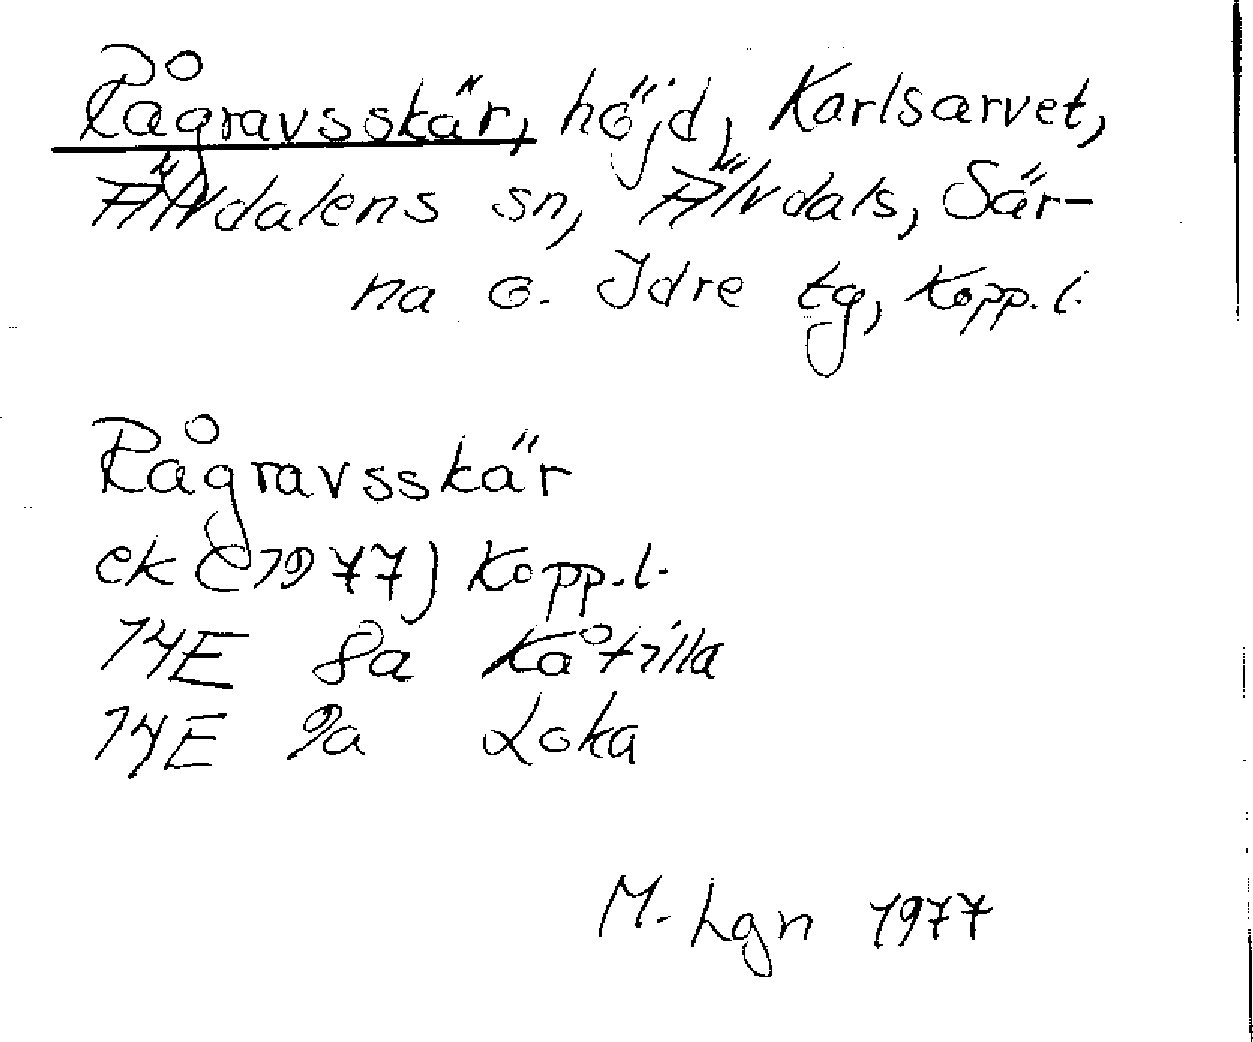 Rågravsskär, höjd, Karlsarvet,
Älvdalens sn, Älvdals, Sär-
na o. Idre tg, Kopp. l.
Rågravsskär
ek (1977) Kopp. l.
14E 8a Kåtilla
14E 9a Loka
M. Lgn 1977